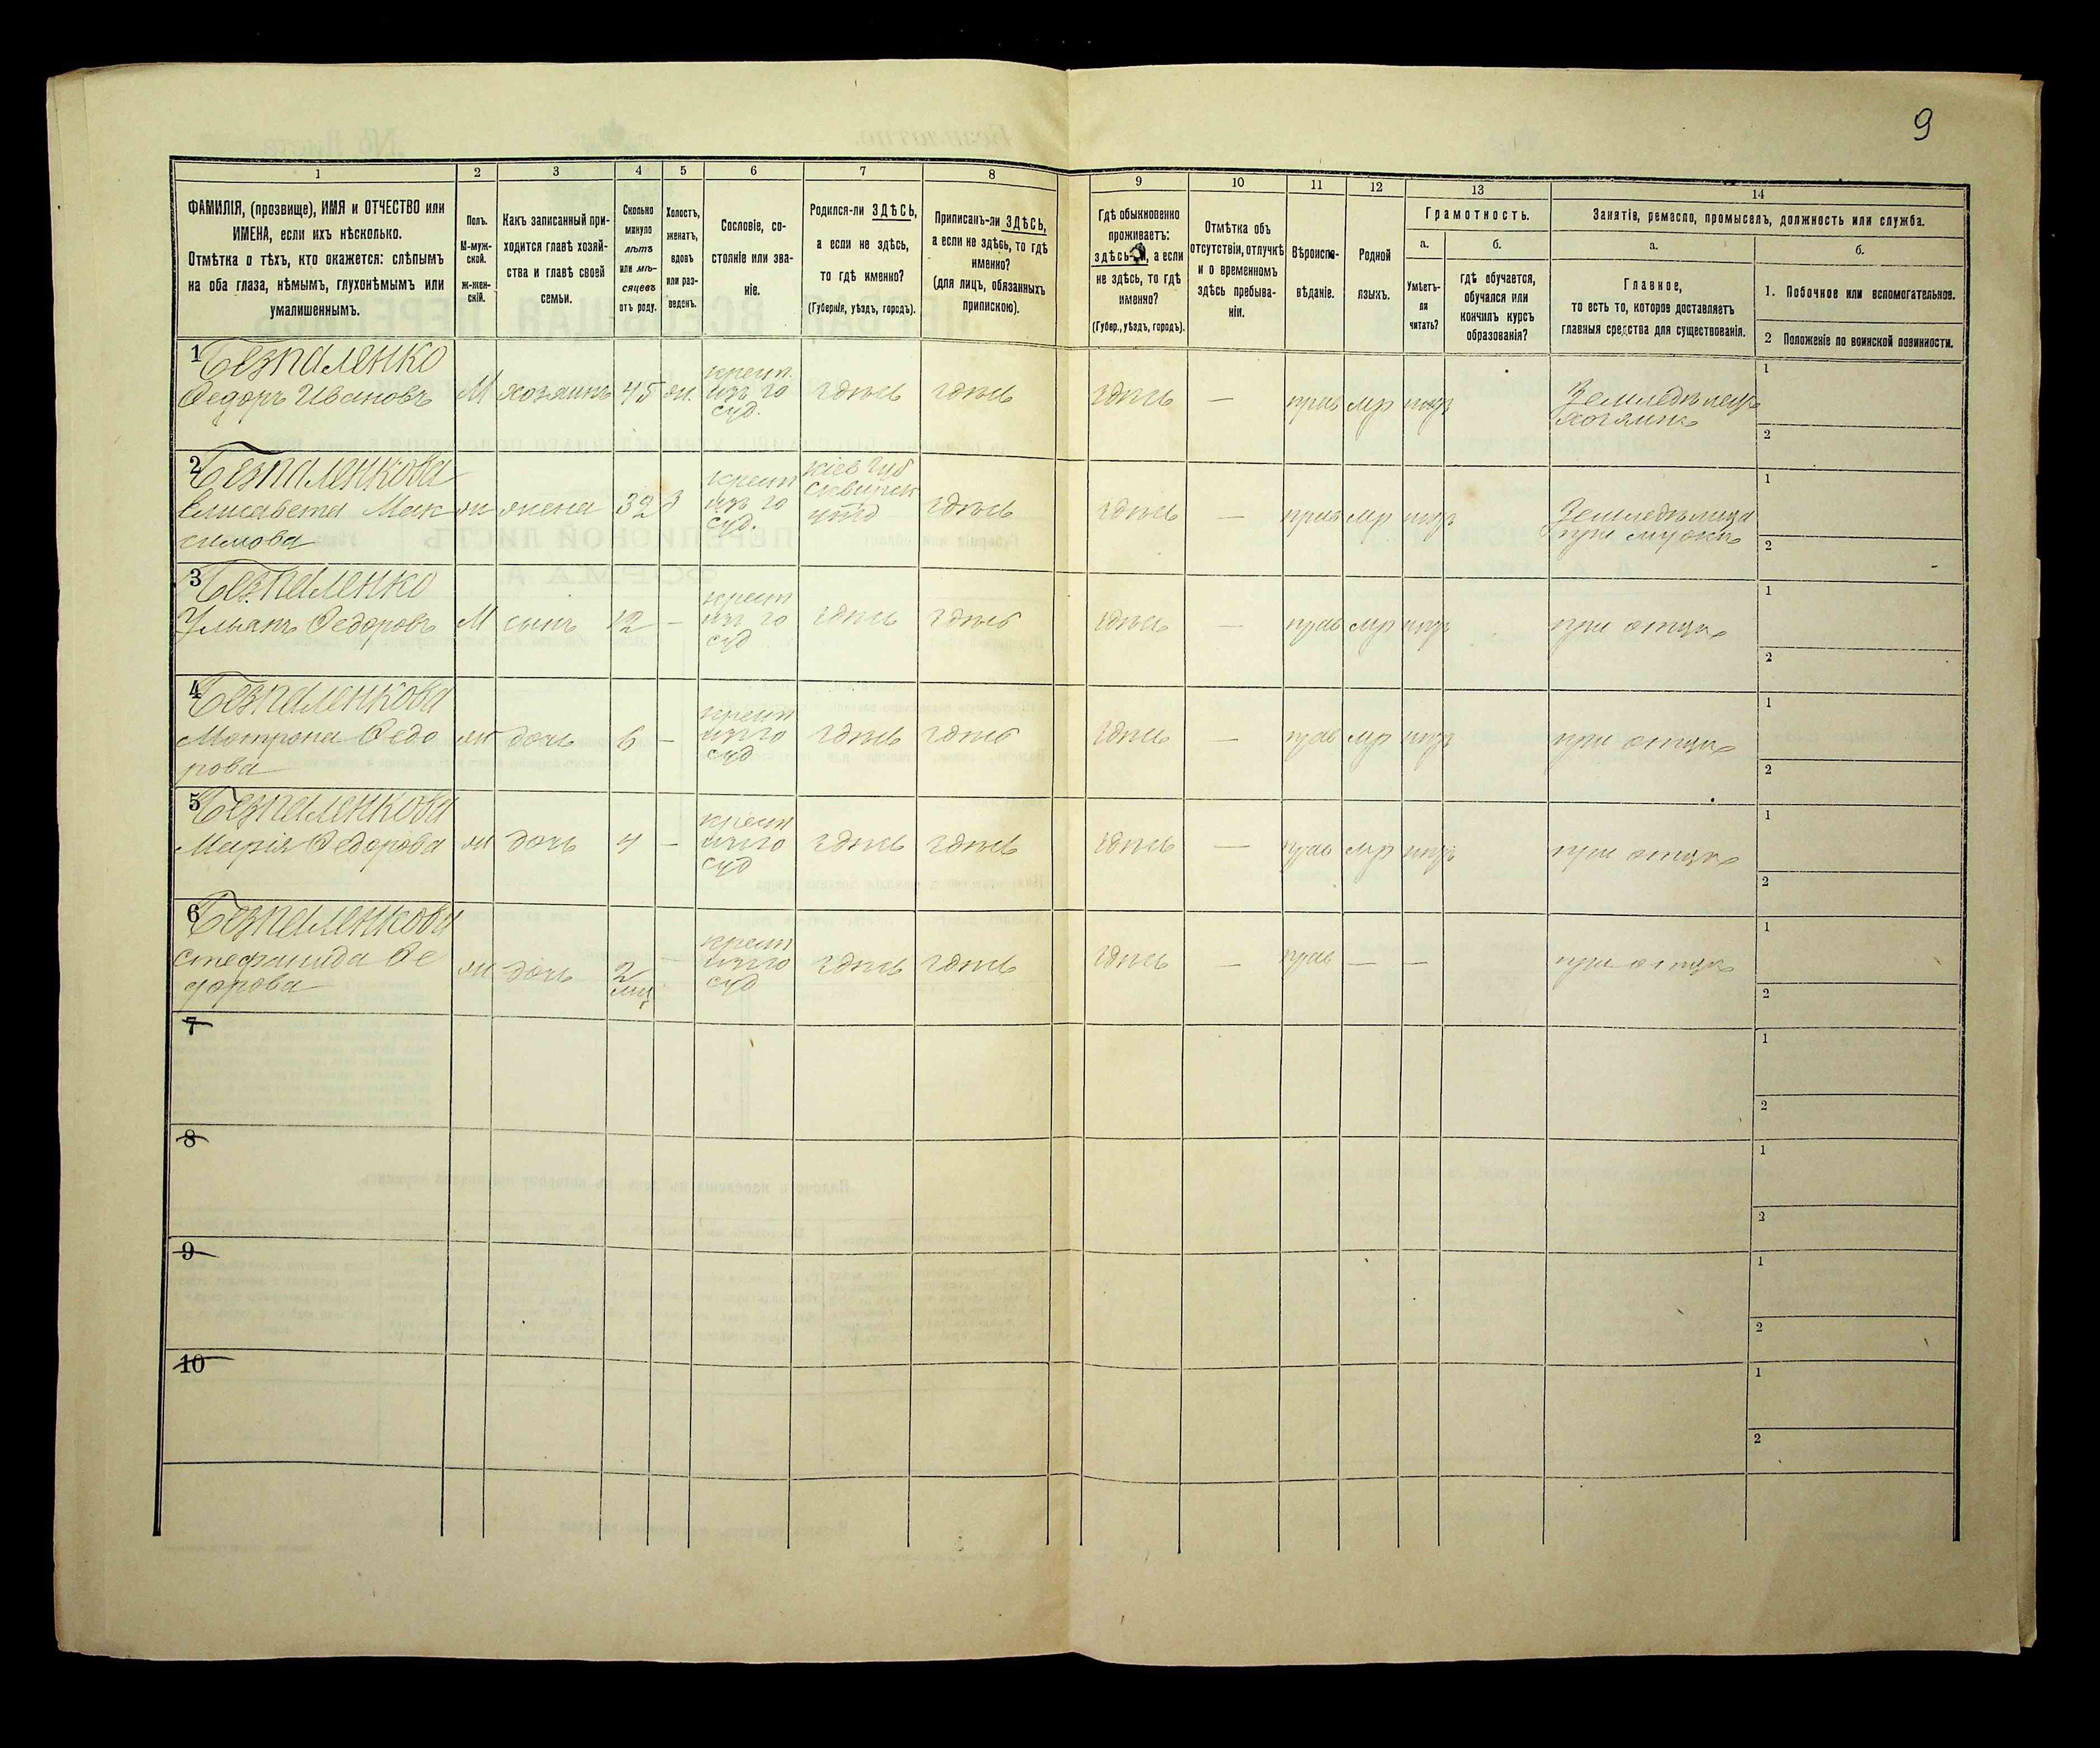 9
1
2
3
4
5
6
7
8
9
10
11
12
13
14
ФАМИЛІЯ, (прозвище), ИМЯ и ОТЧЕСТВО или
ИМЕНА, если ихъ нѣсколько.
Отмѣтка о тѣхъ, кто окажется: слѣпымъ
на оба глаза, нѣмымъ, глухонѣмымъ или
умалишеннымъ.
Полъ.
М-муж-
ской.
ж-жен-
скій.
Какъ записанный при-
ходится главѣ хозяй-
ства и главѣ своей
семьи.
Сколько
минуло
лѣтъ
или мѣ-
сяцевъ
отъ роду.
Холостъ,
женатъ,
вдовъ
или раз-
веденъ.
Сословіе, со-
стояніе или зва-
ніе.
Родился-ли ЗДѢСЬ,
а если не здѣсь,
то гдѣ именно?
(Губернія, уѣздъ, городъ).
Приписанъ-ли ЗДѢСЬ,
а если не здѣсь, то гдѣ
именно?
(для лицъ, обязанныхъ
припискою).
Гдѣ обыкновенно
проживаетъ:
здѣсь-ли, а если
не здѣсь, то гдѣ
именно?
(Губер., уѣздъ, городъ).
Отмѣтка объ
отсутствіи, отлучкѣ
и о временномъ
здѣсь пребыва-
ніи.
Вѣроиспо-
вѣданіе.
Родной
языкъ.
Грамотность.
а.
б.
Умѣетъ-
ли
читать?
гдѣ обучается,
обучался или
кончилъ курсъ
образованія?
Занятіе, ремесло, промыселъ, должность или служба.
а.
б.
Главное,
то есть то, которое доставляетъ
главныя средства для существованія.
1. Побочное или вспомогательное.
2 Положеніе по воинской повинности.
1 Безпаленко
Федоръ Ивановъ
М
хозяинъ
45
жн.
крест.
изъ го
суд.
здѣсь
здѣсь
здѣсь
—
прав
мр
Земледѣлецъ
хозяинъ
1
2
2 Безпаленкова
Елисавета Мак
симова
ж
жена
32
З
крест
изъ го
суд.
Кіев губ
Сквирск
уѣзд
здѣсь
здѣсь
—
прав
мр
Земледѣлица
при мужѣ
1
2
3 Безпаленко
Ульянъ Федоровъ
М
сынъ
12
—
крест
изъ го
суд
здѣсь
здѣсь
здѣсь
—
прав
мр
при отцѣ
1
2
4 Безпаленкова
Мотрона Федо
рова
ж
дочь
6
—
крест
изъ го
суд
здѣсь
здѣсь
здѣсь
—
прав
мр
при отцѣ
1
2
5 Безпаленкова
Марія Федорова
ж
дочь
4
—
крест
изъ го
суд
здѣсь
здѣсь
здѣсь
—
прав
мр
при отцѣ
1
2
6 Безпаленкова
Стефанида Фе
дорова
ж
дочь
2
мц
крест
изъ го
суд
здѣсь
здѣсь
здѣсь
—
прав
—
—
при отцѣ
1
2
7
1
2
8
1
2
9
1
2
10
1
2